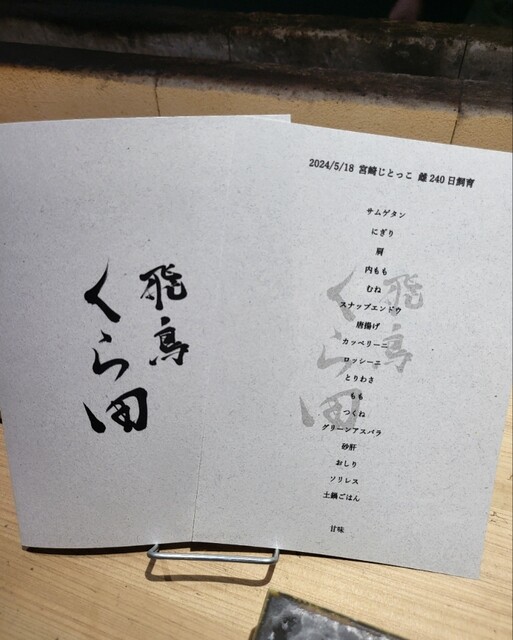 飛鳥
くら田
2024/5/18 宮崎じとっこ 雌240日飼育
サムゲタン
にぎり
肩
内もも
むね
スナップエンドウ
唐揚げ
カッペリーニ
ロッシーニ
とりわさ
もも
つくね
グリーンアスパラ
砂肝
おしり
ソリレス
土鍋ごはん
甘味
飛鳥
くら田